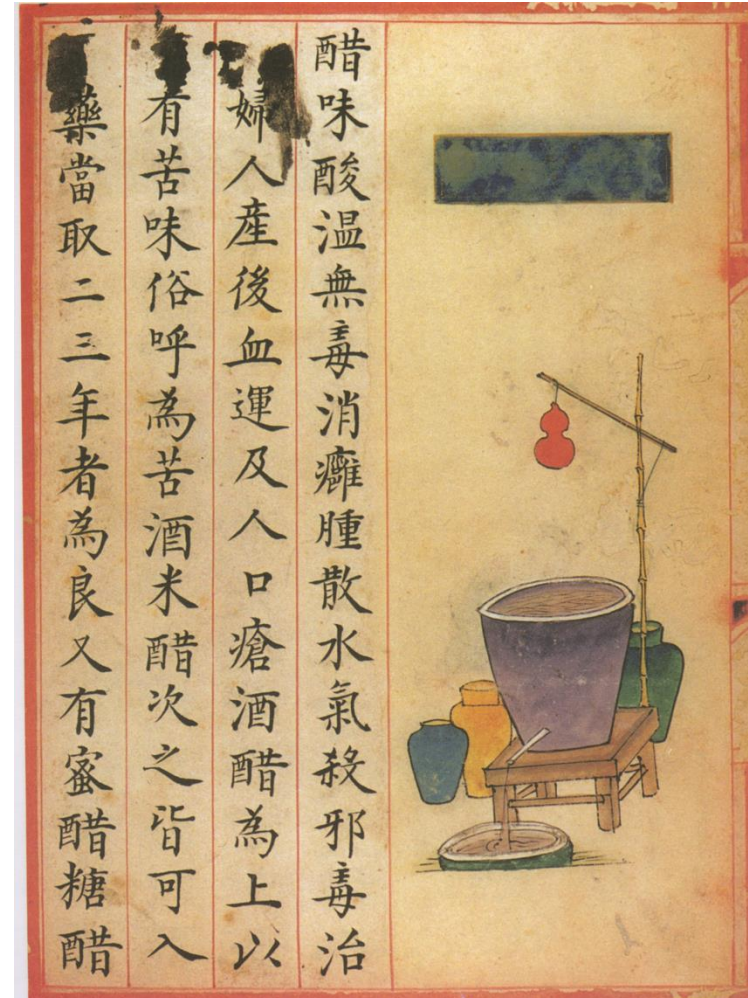 醋味酸温無毒消癰腫散水氣殺邪毒治
婦人産後血運及人口瘡酒醋為上以
有苦味俗呼為苦酒米醋次之皆可入
藥當取二三年者為良又有蜜醋糖醋